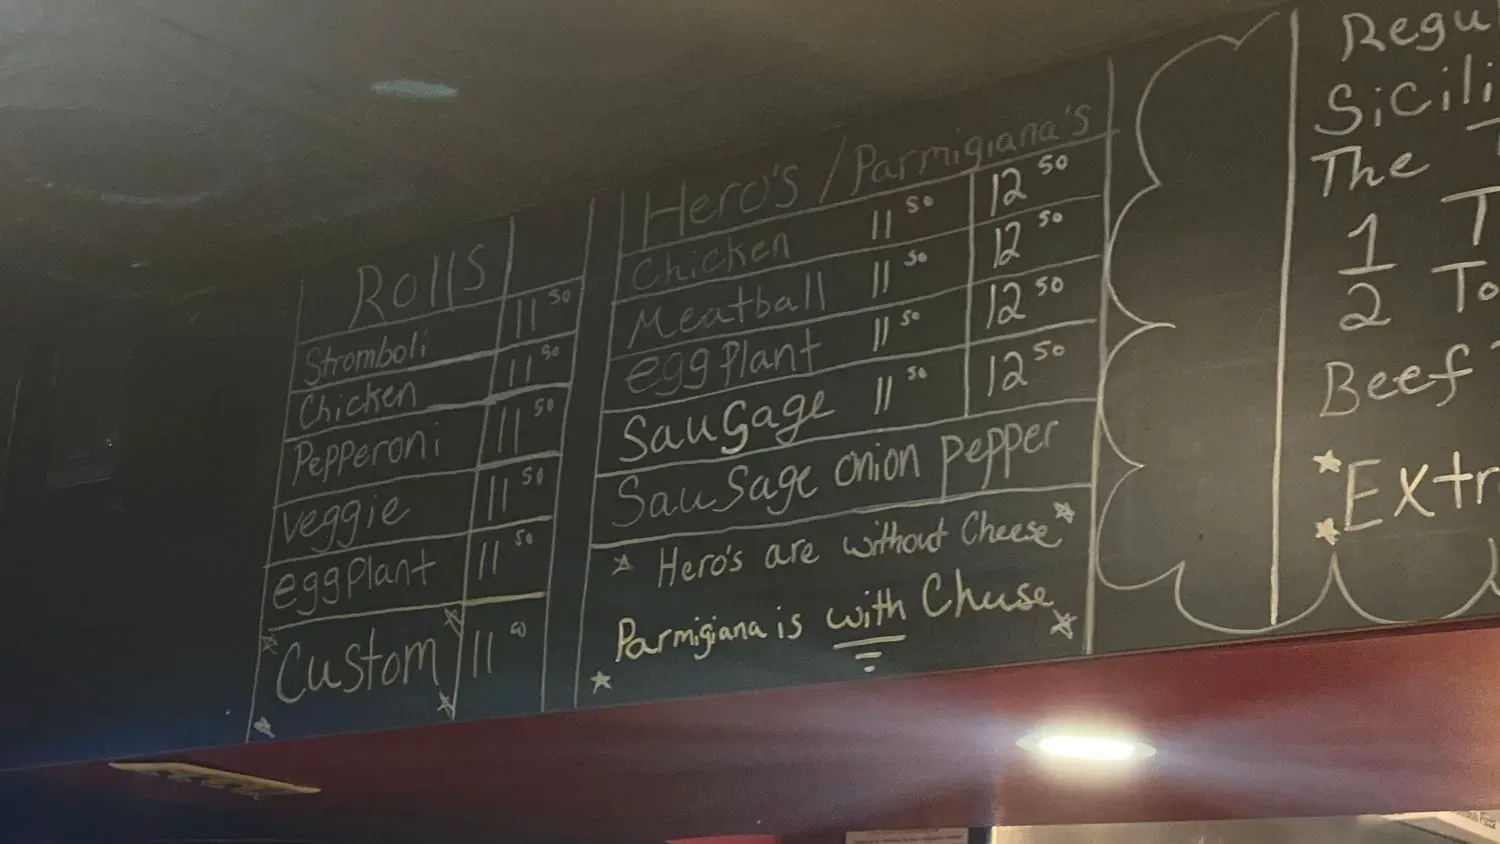 Rolls
Stromboli 11 50
Chicken 11 50
Pepperoni 11 50
Veggie 11 50
eggPlant 11 50
Custom 11 50
Hero's / Parmigiana's
Chicken 11 50 12 50
Meatball 11 50 12 50
eggPlant 11 50 12 50
Sausage 11 50 12 50
Sausage onion pepper
Hero's are without Cheese
Parmigiana is with Chuse
Regu
Sicili
The T
1/2 T
To
Beef
Extr